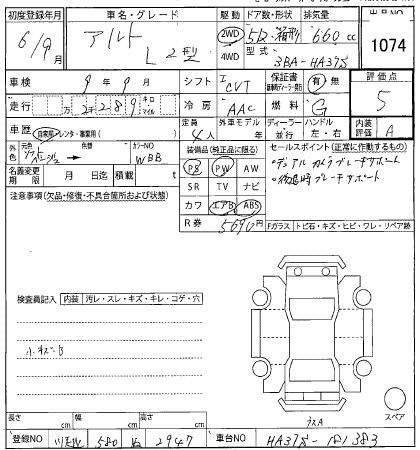 初度登録年月 車名・グレード 駆動 ドア数・形状 排気量
6/9月 アルト L 2型 2WD 4WD 5D・箱形 660cc 1074
型式 3BA-HA37S
車検 9年9月 シフト I CVT 保証書 新車時保証書 有・無 評価点 5
走行 万2289 キロ マイル 冷房 AAC 燃料 G
車歴 自家用・レンタ・事業用( ) 定員 4人 外車モデル 年 ディーラー・並行 ハンドル 左・右 内装評価 A
外色 元色 色替 カラーNO WBB 装備品(純正品に限る) セールスポイント(正常に作動するもの)
名義変更期限 月 日迄 積載 t PS PW AW ・デュアルカメラブレーキサポート
注意事項(欠品・修復・不具合箇所および状態) SR TV ナビ ・後退時ブレーキサポート
カワ エアB ABS
R券 5690円 Fガラス トビ石・キズ・ヒビ・ワレ・リペア跡
検査員記入 内装 汚レ・スレ・キズ・キレ・コゲ・穴
小キズ・B
スペア
長さ cm 幅 cm 高さ cm
登録NO 580 2947 車台NO HA37S-181383